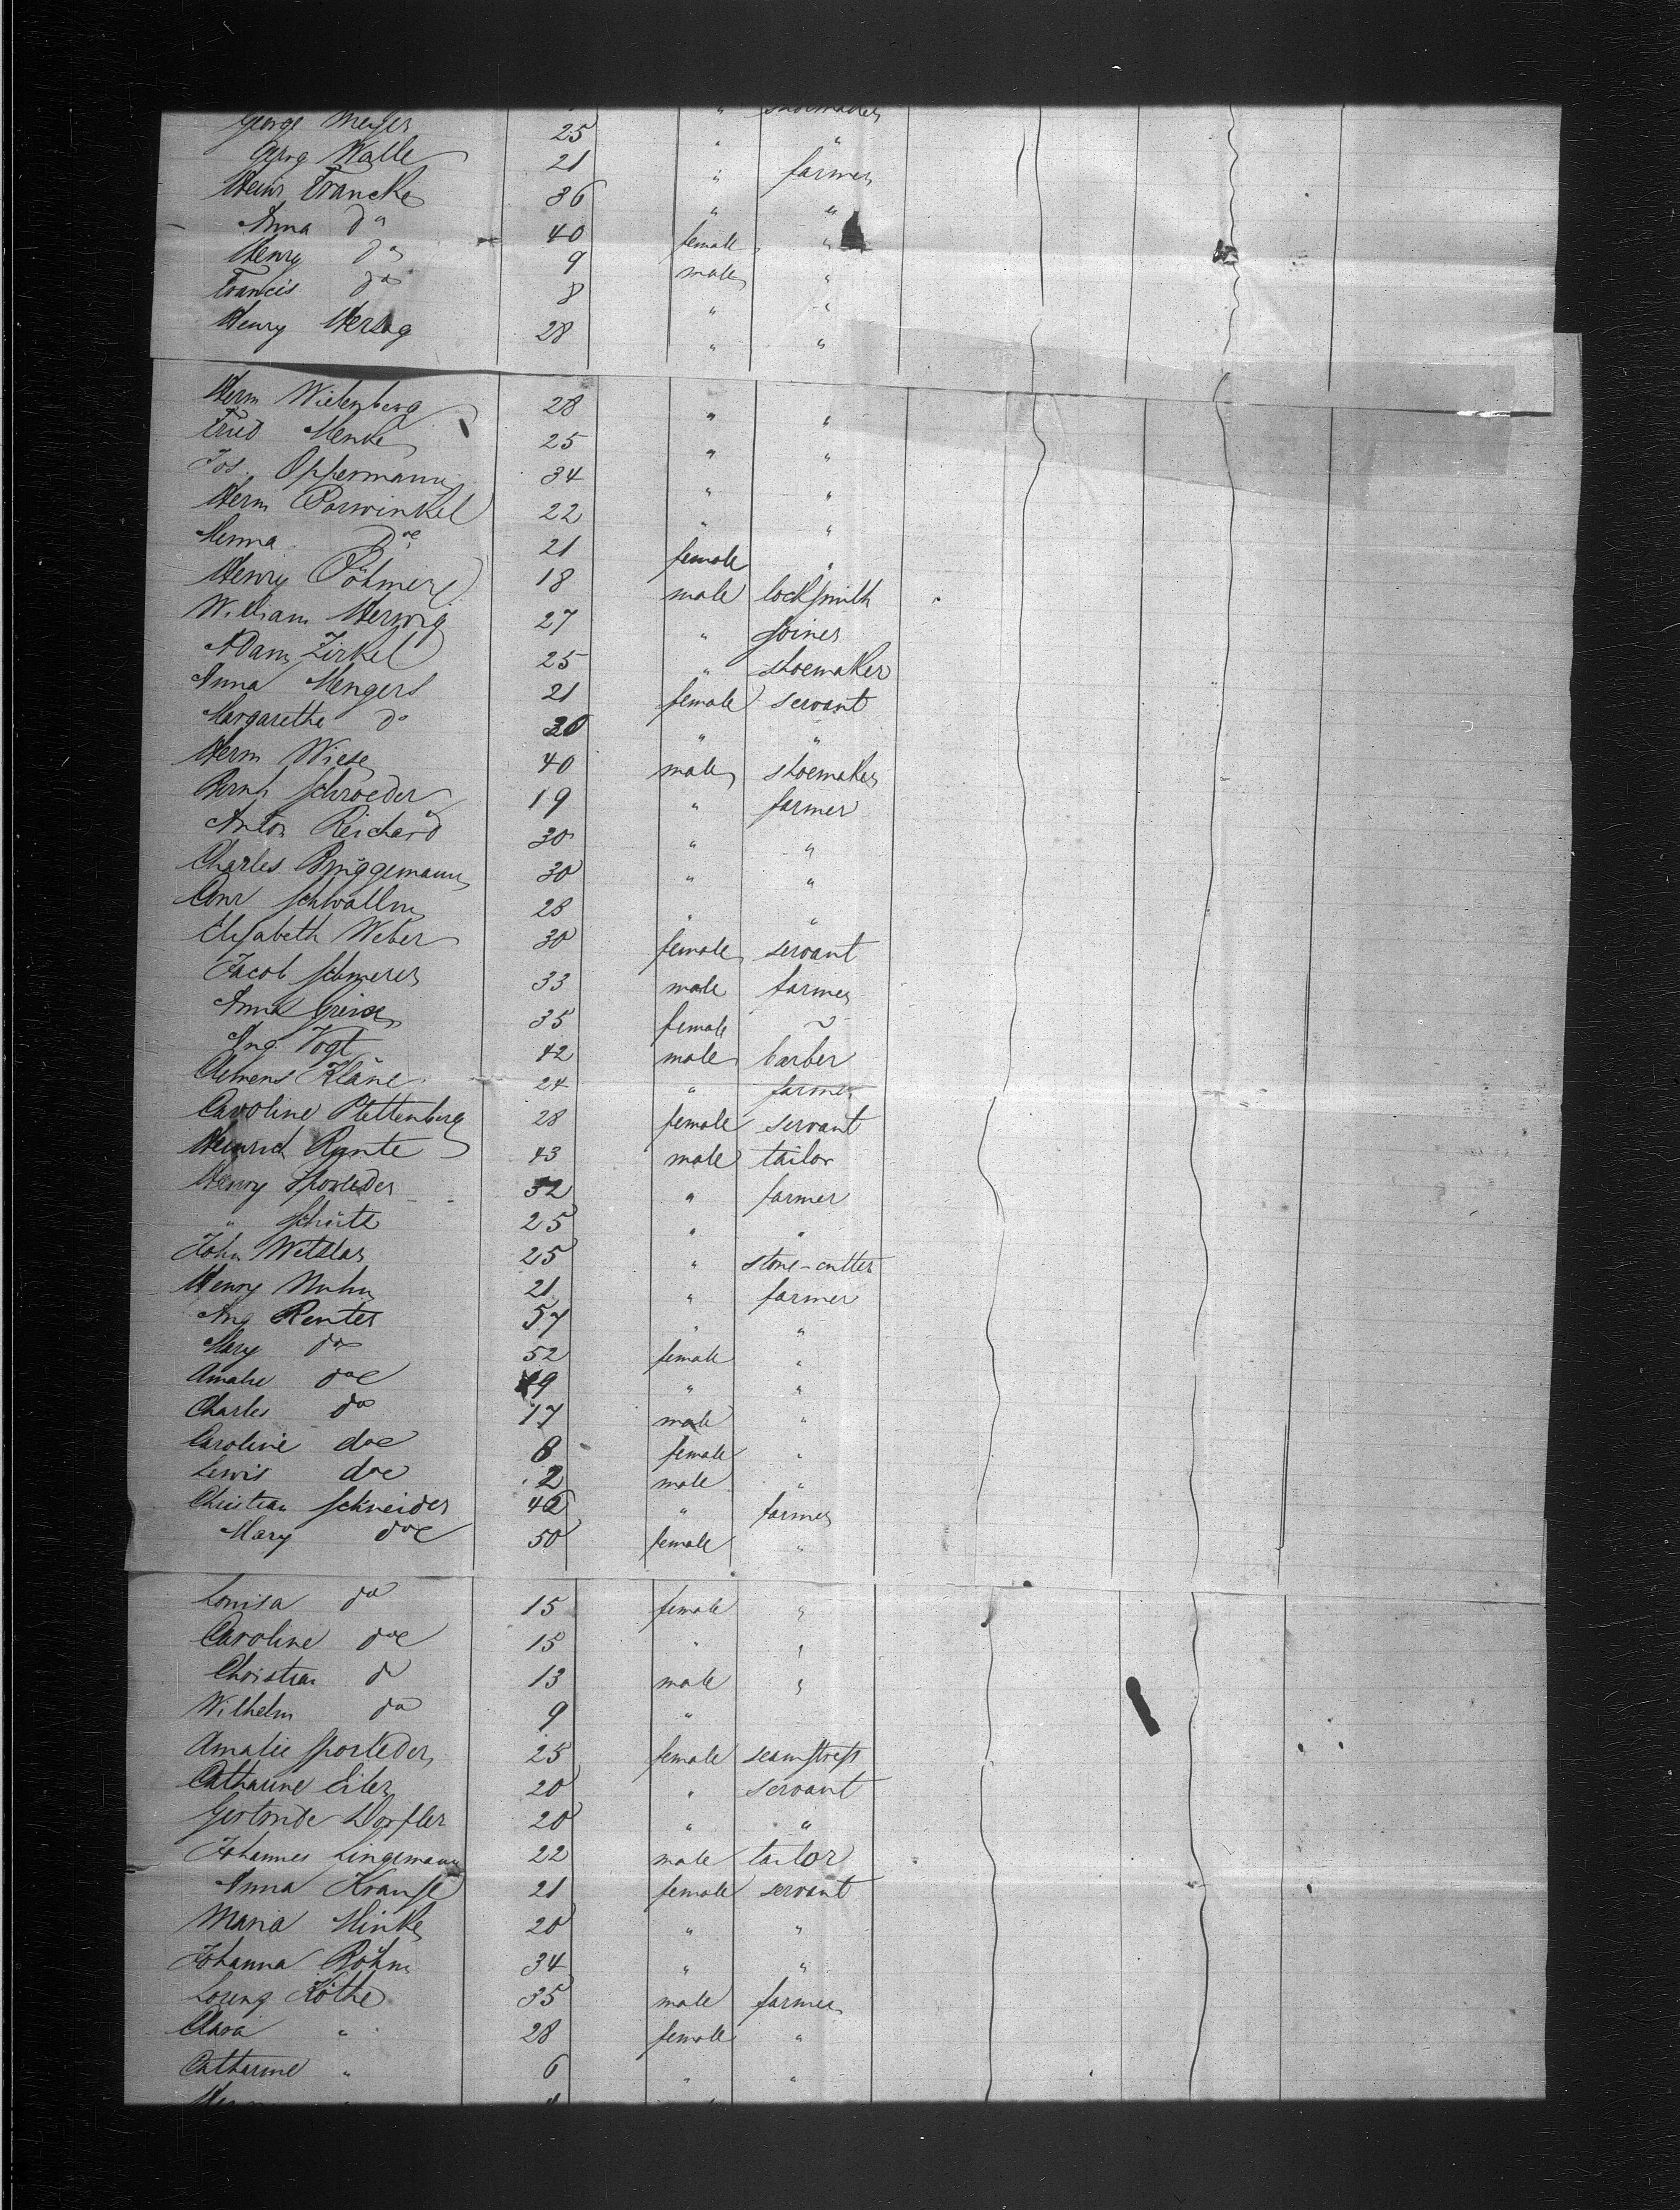 George Meyer 25 " "
Georg Walle 21 " farmer
Heinr Francke 36 " "
Anna do 40 female "
Henry do 9 male "
Francis do 8 " "
Henry Herzog 28 " "
Herm Wietenberg 28 " "
Fried Menke 25 " "
Jos. Oppermann 34 " "
Herm Porwinkel 22 " "
Menna do 21 female "
Henry 18 male locksmith
William Herwig 27 " joiner
Adam Zirkel 25 " shoemaker
Anna Mengers 21 female servant
Margarethe do 20 " "
Herm Wiese 40 male shoemaker
Bernh Schroeder 19 " farmer
Anton Reichard 30 " "
Charles Brüggemann 30 " "
Conr Schwallm 28 " "
Elisabeth Weber 30 female servant
Jacob Schmerer 33 male farmer
Anna 35 female
Aug. Vogt 42 male barber
Clemens Kläne 24 " farmer
Caroline Plettenberg 28 female servant
Heinrich Rente 43 male tailor
Henry Sporleder 32 " farmer
" Schütz 25 " "
John Wetzlar 25 " stone-cutter
Henry Nuhn 21 " farmer
Aug Renter 57 " "
Mary do 52 female "
Amalie do 19 " "
Charles do 17 male "
Caroline do 8 female "
Lewis do 2 male "
Christian Schneider 42 " farmer
Mary do 50 female "
Louisa do 15 female "
Caroline do 15 " "
Christian do 13 male "
Wilhelm do 9 "
Amalie Sporleder 25 female seamstress
Catharine Eiler 20 " servant
Gertrude Dorfler 20 " "
Johannes Lingemann 22 male tailor
Anna Krause 21 female servant
Maria Hinke 20 " "
Johanna Böhm 34 " "
Lorenz Köthe 35 male farmer
Clara " 28 female "
Catharine " 6 " "